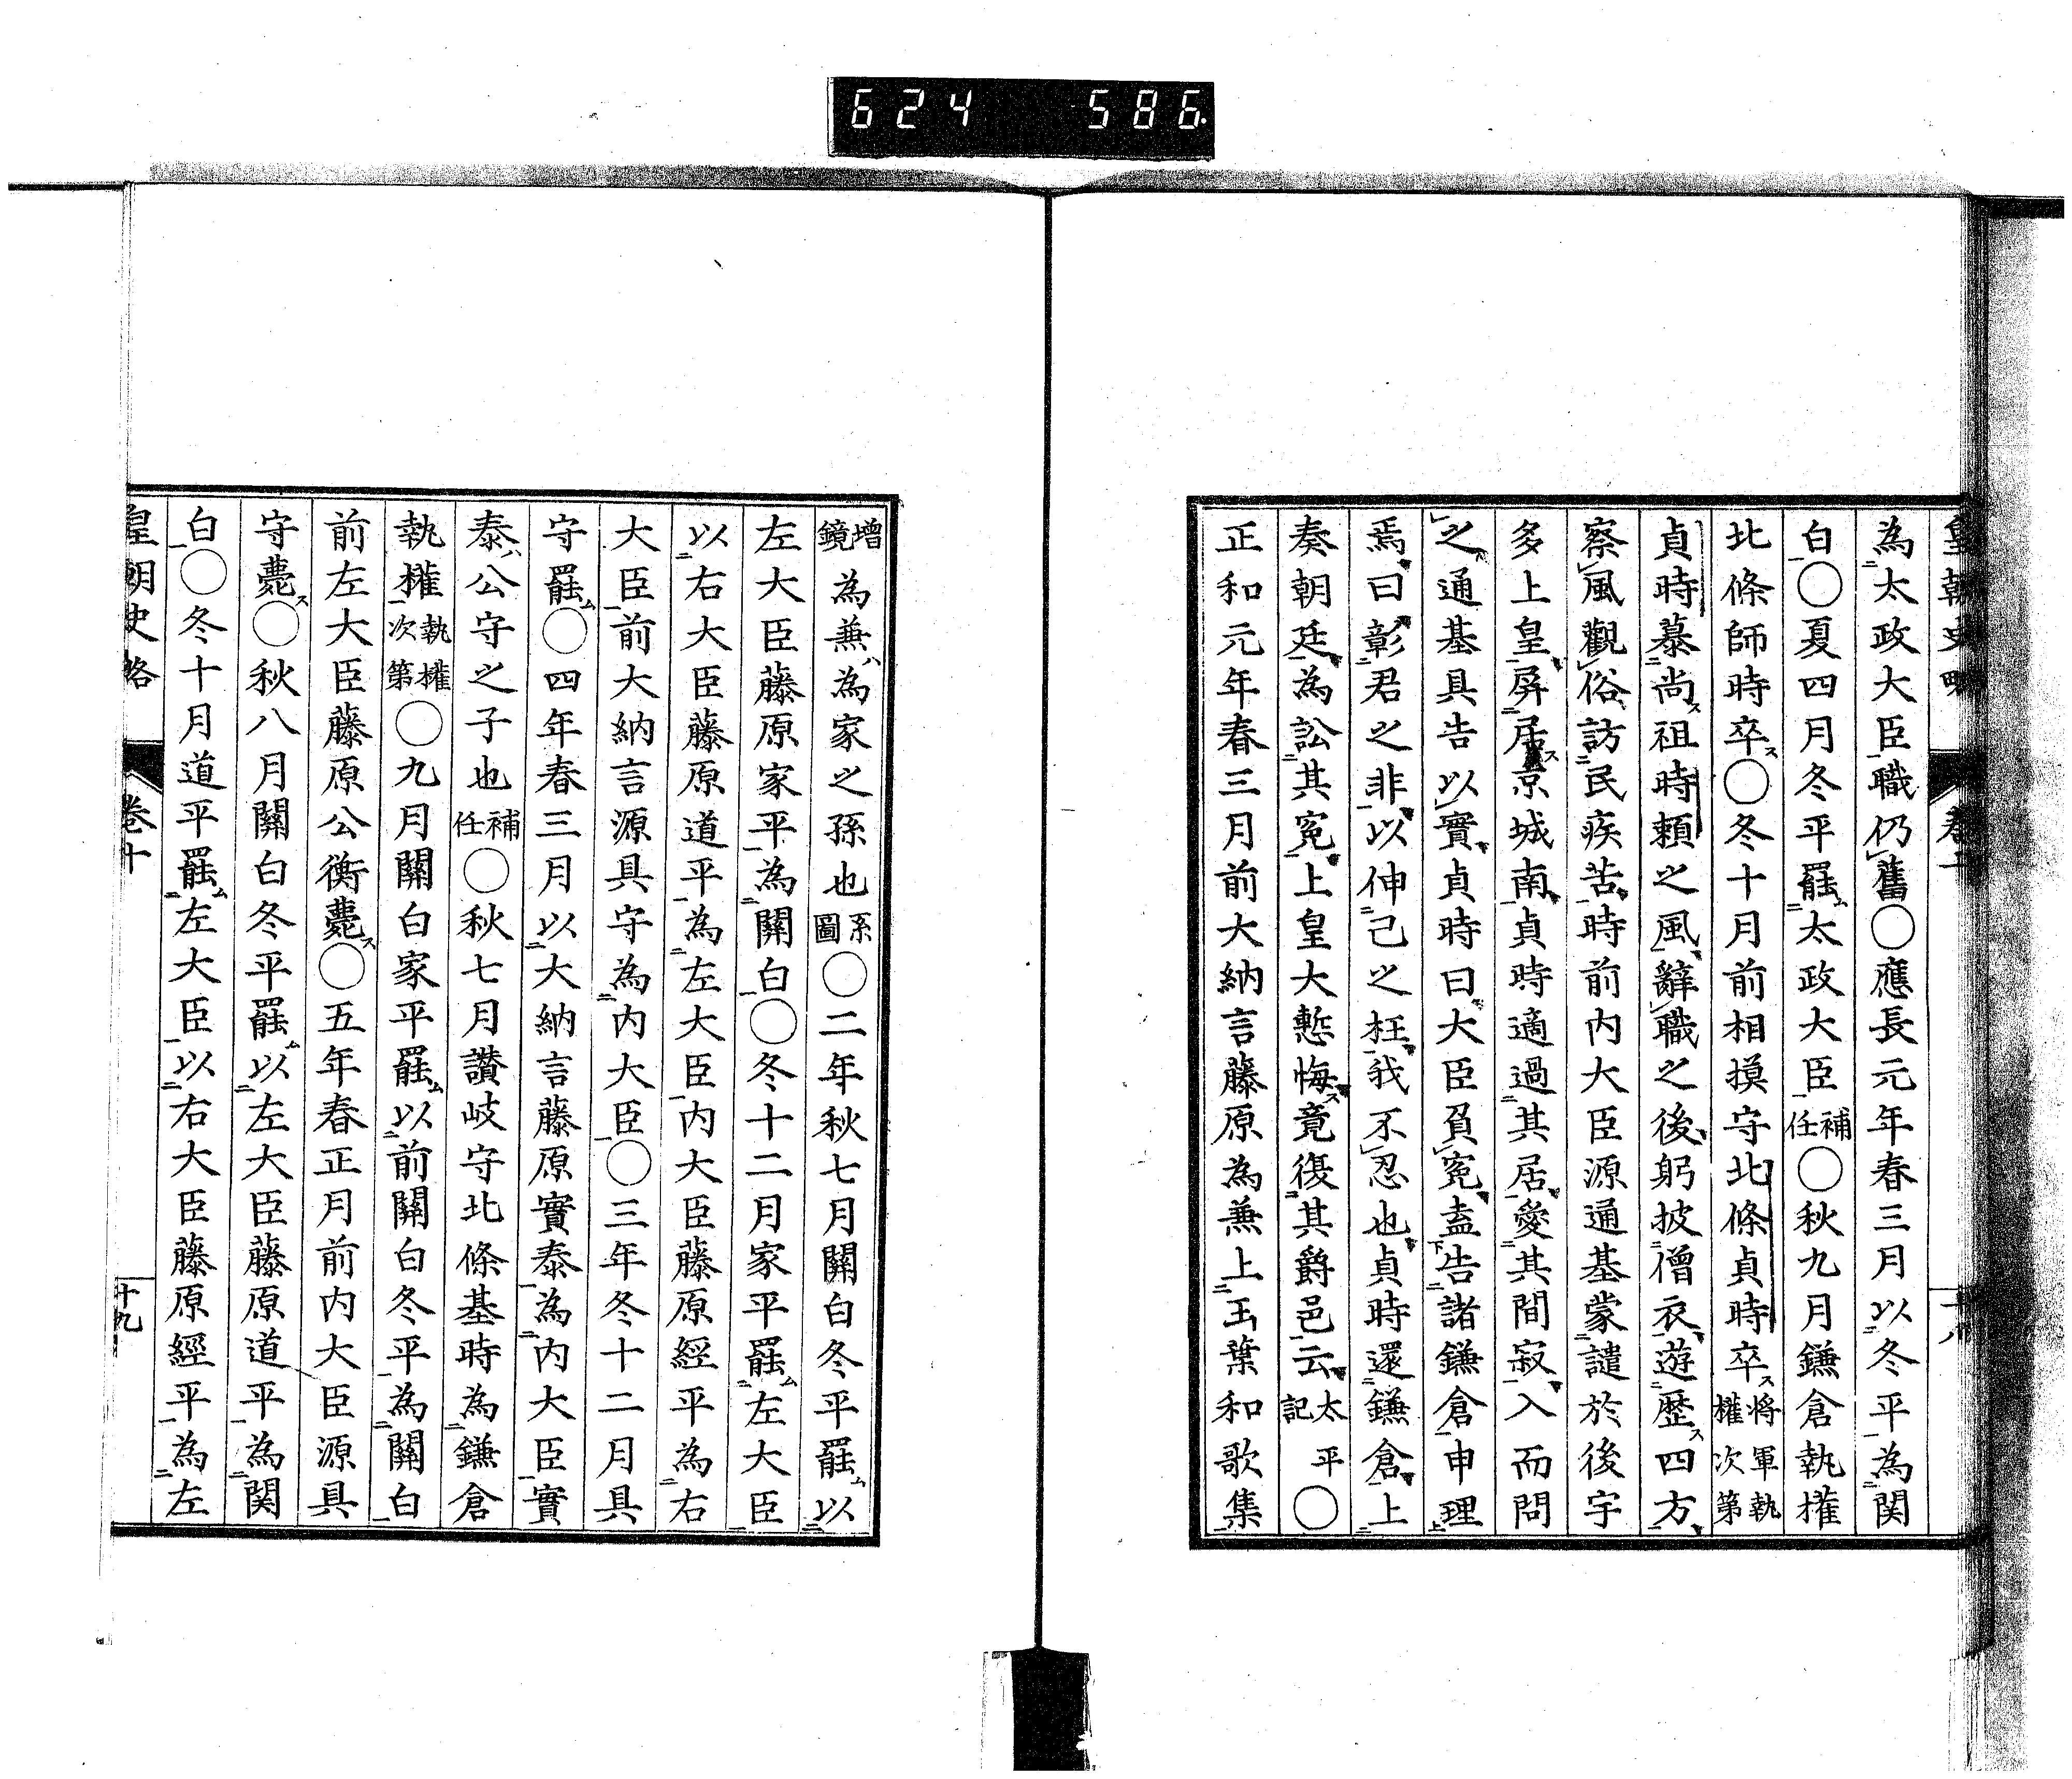 624 586
皇朝史略 卷十 十八
為太政大臣職仍舊○應長元年春三月以冬平為関
白○夏四月冬平罷太政大臣補任○秋九月鎌倉執權
北條師時卒○冬十月前相摸守北條貞時卒將軍執權次第
貞時慕尚祖時頼之風辭職之後躬披僧衣遊歷四方
察風觀俗訪民疾苦時前内大臣源通基蒙譴於後宇
多上皇屏居京城南貞時適過其居愛其間寂入而問
之通基具告以實貞時曰大臣負冤盍告諸鎌倉申理
焉曰彰君之非以伸己之枉我不忍也貞時還鎌倉上
奏朝廷為訟其冤上皇大慙悔竟復其爵邑云太平記○
正和元年春三月前大納言藤原為兼上玉葉和歌集
增鏡為兼為家之孫也系圖○二年秋七月關白冬平罷以
左大臣藤原家平為關白○冬十二月家平罷左大臣
以右大臣藤原道平為左大臣内大臣藤原經平為右
大臣前大納言源具守為内大臣○三年冬十二月具
守罷○四年春三月以大納言藤原實泰為内大臣實
泰公守之子也補任○秋七月讚岐守北條基時為鎌倉
執權執權次第○九月關白家平罷以前關白冬平為關白
前左大臣藤原公衡薨○五年春正月前内大臣源具
守薨○秋八月關白冬平罷以左大臣藤原道平為関
白○冬十月道平罷左大臣以右大臣藤原經平為左
皇朝史略 卷十 十九